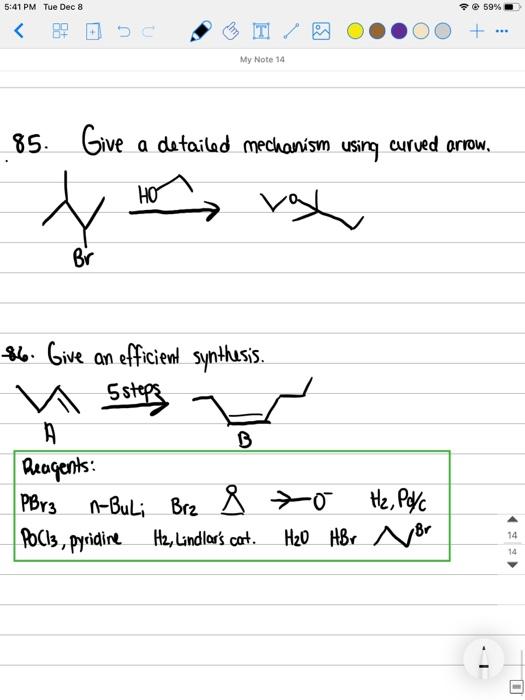 5:41 PM Tue Dec 8
59%
My Note 14
85. Give a detailed mechanism using curved arrow.
HO
O
Br
86. Give an efficient synthesis.
5 steps
A
B
Reagents:
PBr3 n-BuLi Br2 O O⁻ H2, Pd/c
PoCl3, pyridine H2, Lindlar's cat. H2O HBr Br
14
14